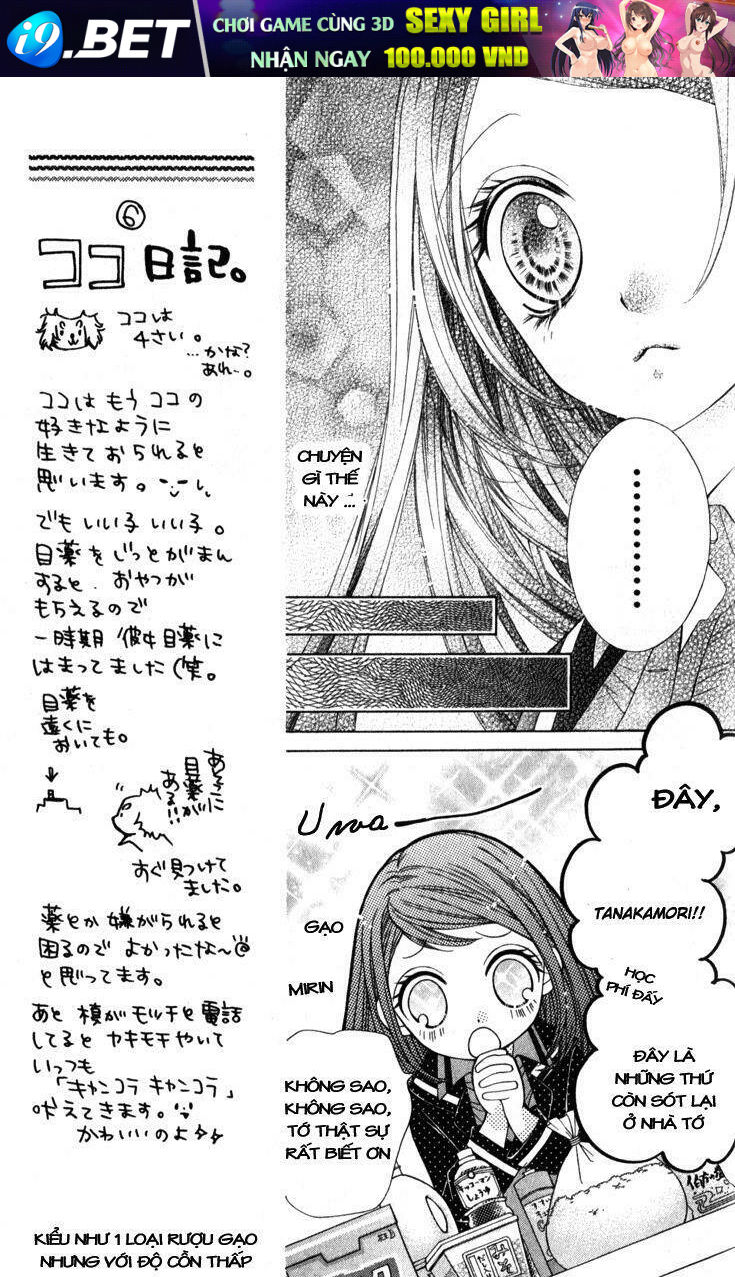 i9.BET
CHƠI GAME CÙNG 3D SEXY GIRL
NHẬN NGAY 100.000 VND
⑥
ココ日記。
ココは
4さい。
…かな?
あれ…。
ココは もう ココの
好きなように
生きて おられると
思います。
でも いい子 いい子。
目薬を じっとがまん
すると、おやつが
もらえるので
一時期 彼女目薬に
はまってました(笑。
目薬を
遠くに
おいても。
あそこに
目薬が
ある!!
すぐ見つけて
ました。
薬とか 嫌がられると
困るので よかったな〜
と思ってます。
あと 槙がモルチと電話
してると ヤキモチやいて
いっつも
「キャンコラ キャンコラ」
吠えてきます。
かわいいのよ
KIỂU NHƯ 1 LOẠI RƯỢU GẠO
NHƯNG VỚI ĐỘ CỒN THẤP
CHUYỆN
GÌ THẾ
NÀY ...
ĐÂY,
TANAKAMORI!!
HỌC
PHÍ ĐẤY
ĐÂY LÀ
NHỮNG THỨ
CÒN SÓT LẠI
Ở NHÀ TỚ
Uwa
GẠO
MIRIN
KHÔNG SAO,
KHÔNG SAO,
TỚ THẬT SỰ
RẤT BIẾT ƠN
しょうゆ
みそ